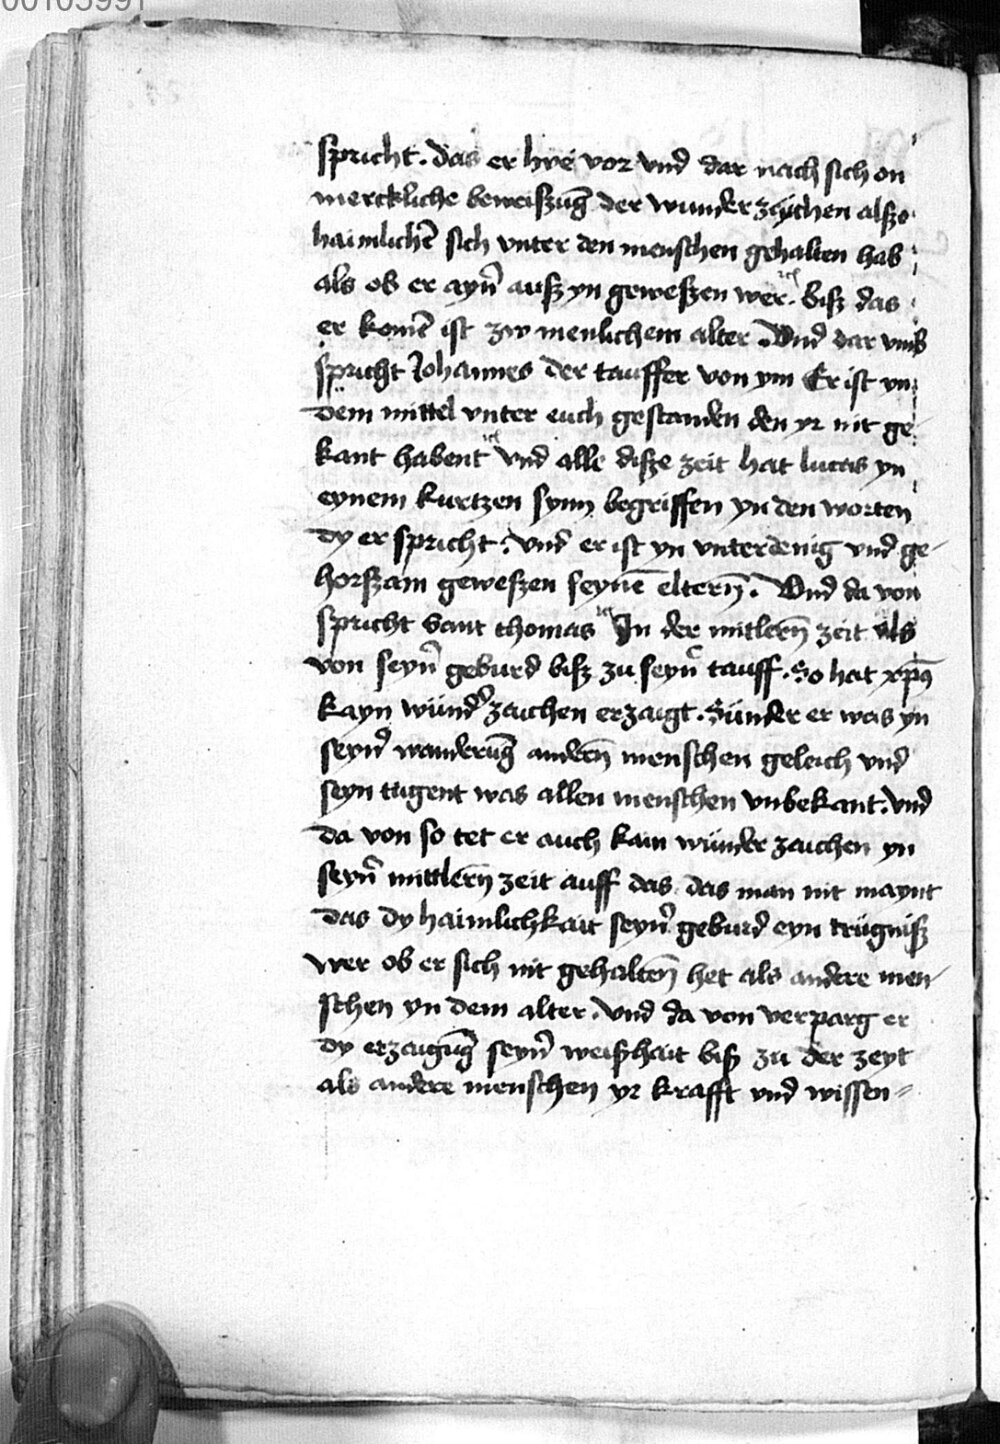 00103991
spricht. das er hye vor vnd dar nach sich on
merckliche beweiszūg der wunderzaichen alszo
haimlichē sich vnter den menschen gehalten hab
als ob er ayn̄ ausz yn geweszen wer. bisz das
er komē ist zw menlichem alter. Vnd dar vmb
spricht Johannes der tauffer von ym Er ist yn
dem mittel vnter euch gestanden den yr nit ge
kant habent Vnd alle disze zeit hat lucas yn
eynem kurtzen synn begriffen yn den worten
dy er spricht: vnd er ist yn vnterdenig vnd ge-
horszam geweszen seynē eltern̄. Vnd da von
spricht Sant thomas In der mitlern̄ zeit als
von seyn̄ geburd bisz zu seyn̄ tauff. So hat xp̄s
kayn wunderzaichen erzaigt. Sunder er was yn
seyn̄ wanderūg andern̄ menschen geleich vnd
seyn tugent was allen menschen vnbekant. Vnd
da von so tet er auch kain wunder zaichen yn
seyn̄ mittlern̄ zeit auff das das man nit maynt
das dy haimlichkait seyn̄ geburd eyn trugnisz
wer ob er sich nit gehalten̄ het als andere men-
schen yn dem alter. Vnd da von verparg er
dy erzaigūg seyn̄ weiszhait bisz zu der zeyt
als andere menschen yr krafft vnd wissen-